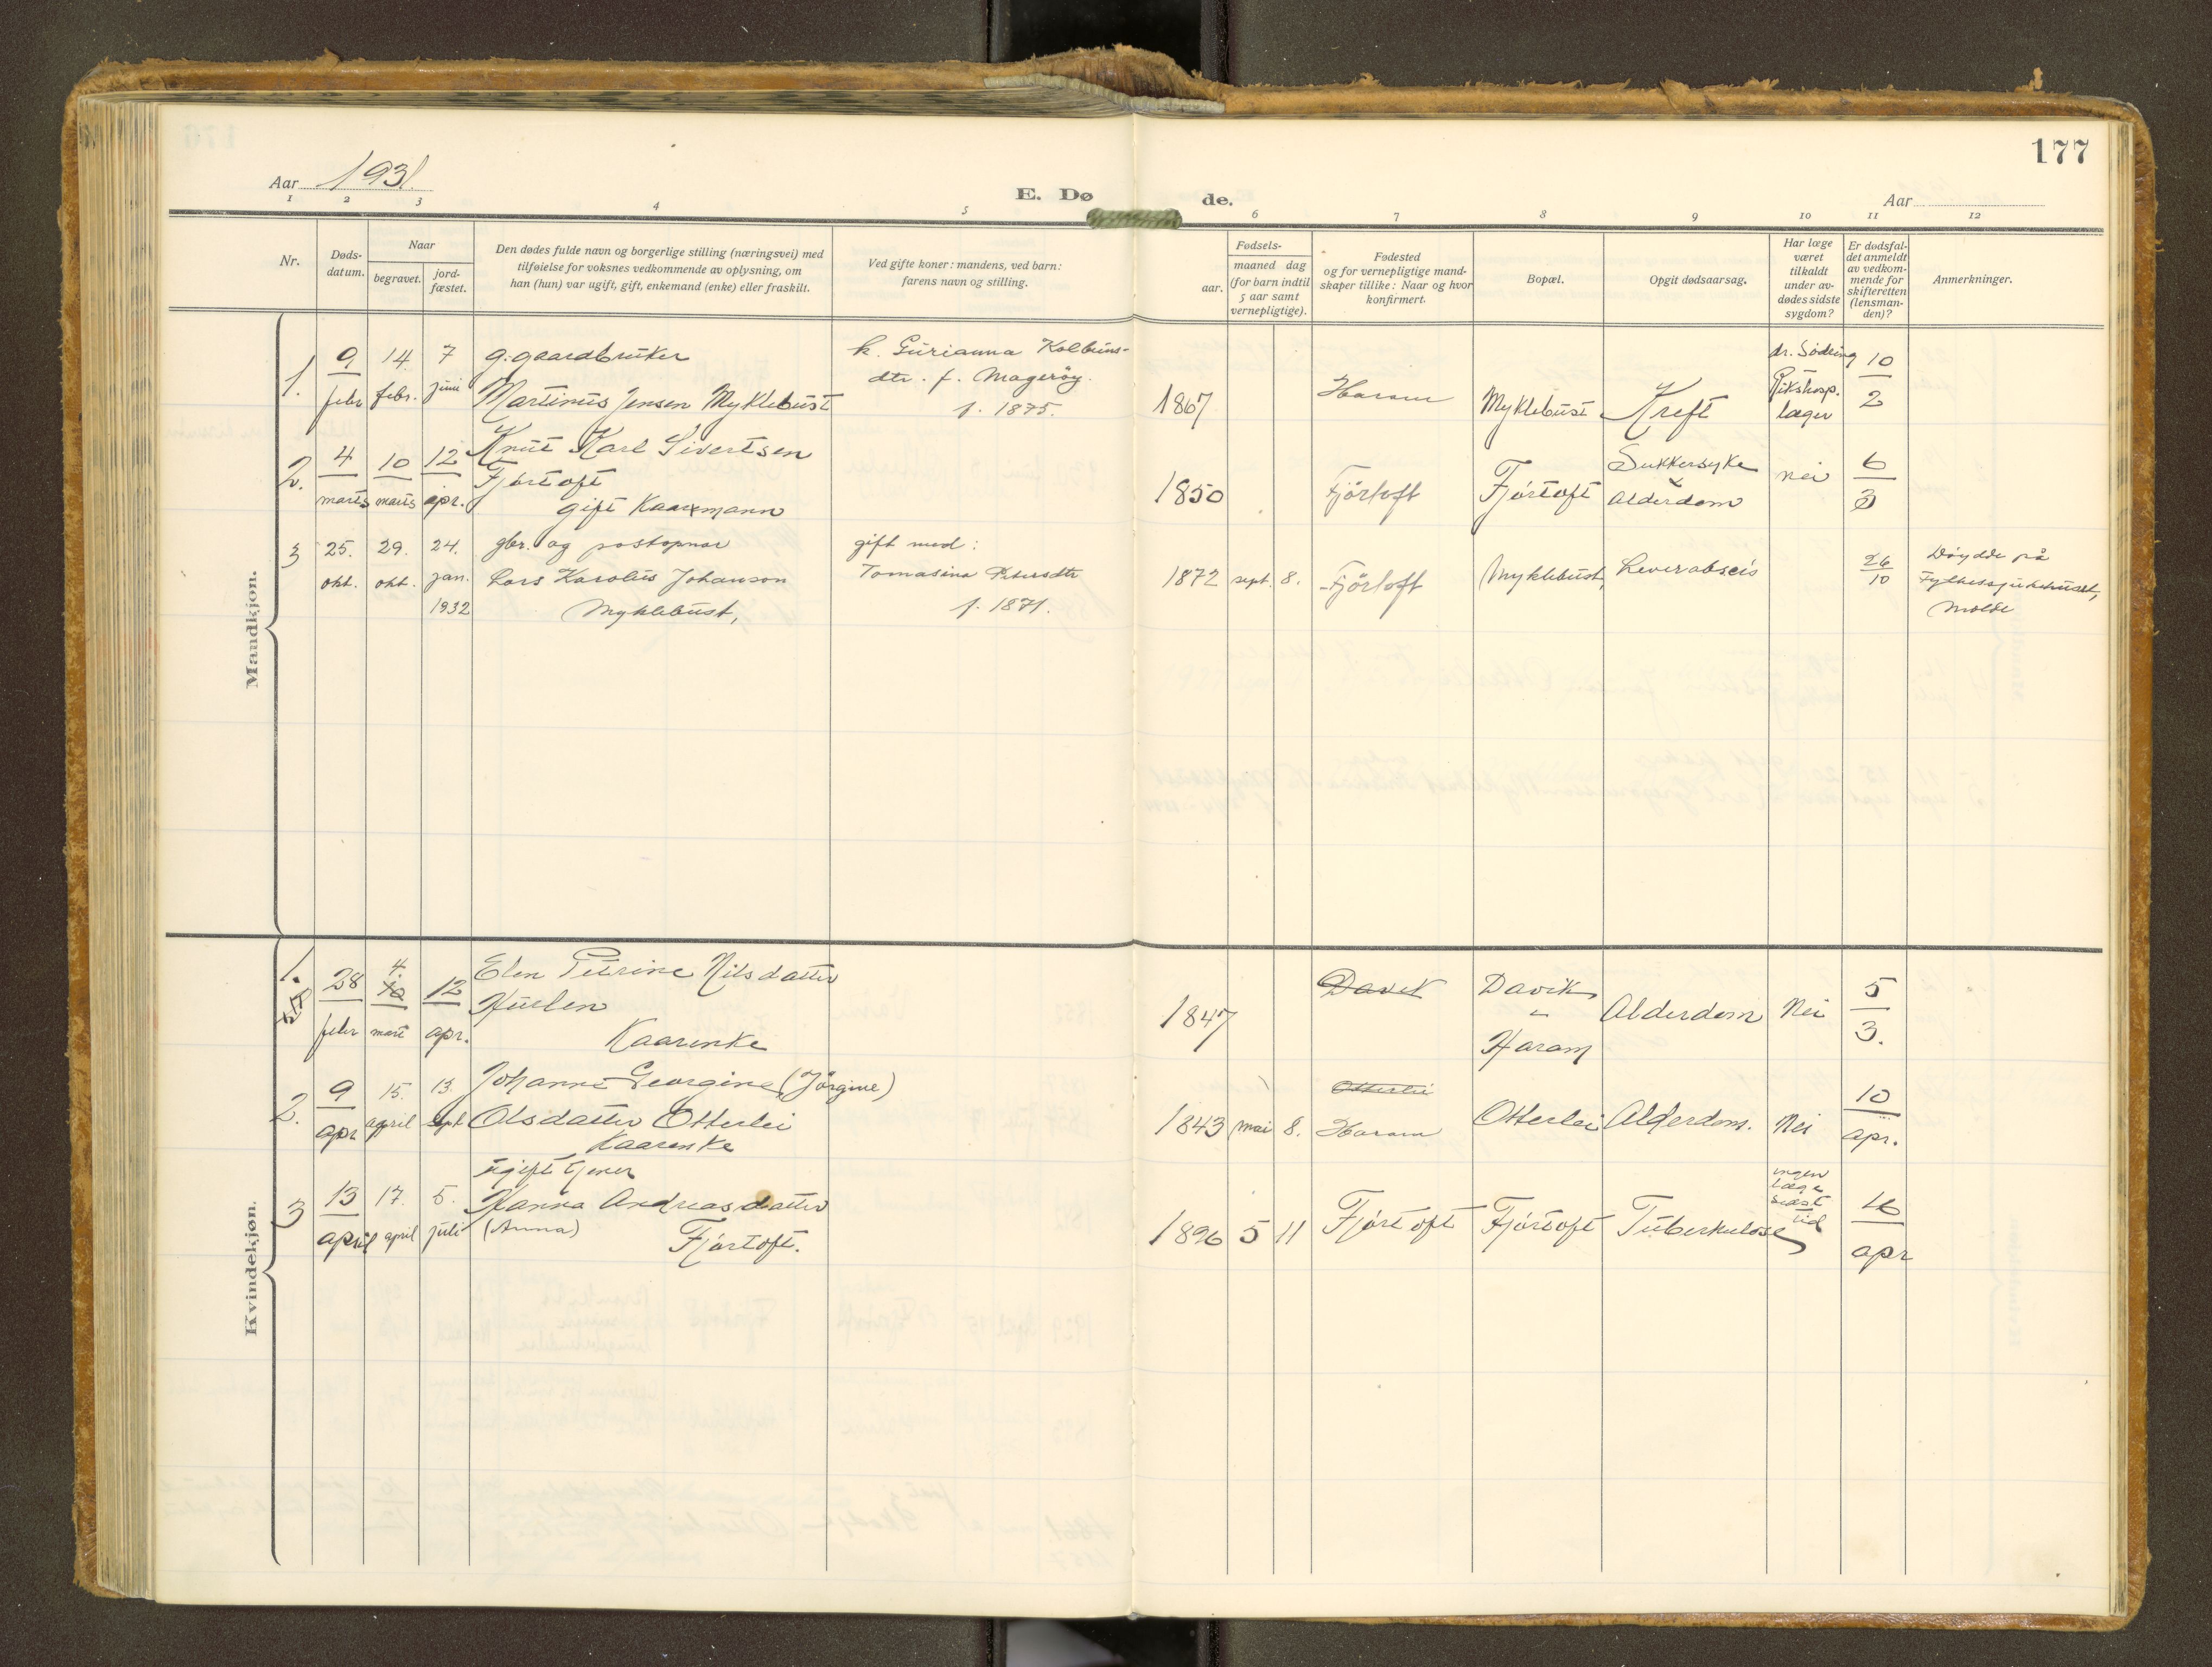 177
Aar 1931.
E. Døde.
Aar
1 2 3 4 5 6 7 8 9 10 11 12
Nr.
Døds-
datum.
Naar
begravet.
jord-
fæstet.
Den dødes fulde navn og borgerlige stilling (næringsvei) med
tilføielse for voksnes vedkommende av oplysning, om
han (hun) var ugift, gift, enkemand (enke) eller fraskilt.
Ved gifte koner: mandens, ved barn:
farens navn og stilling.
Fødsels-
aar.
maaned dag
(for barn indtil
5 aar samt
vernepligtige).
Fødested
og for vernepligtige mand-
skaper tillike: Naar og hvor
konfirmert.
Bopæl.
Opgit dødsaarsag.
Har læge
været
tilkaldt
under av-
dødes sidste
sygdom?
Er dødsfal-
det anmeldt
av vedkom-
mende for
skifteretten
(lensman-
den)?
Anmerkninger.
Mandkjøn.
1.
9
febr
14.
febr.
7
juni
g. gaardbruker
Martinus Jensen Myklebust
k. Gurianna Kolbeins-
dtr. f. Magerøy.
f. 1875.
1867
Haram
Myklebust
Kreft
dr. Södring
Rikshosp.
læger
10
2
2.
4
marts
10
marts
12
apr.
Knut Karl Sivertsen
Fjørtoft
gift Kaarmann
1850
Fjörtoft
Fjørtoft
Sukkersyke
Alderdom
nei
6
3
3
25.
okt.
29.
okt.
24.
jan.
1932
gbr. og postopnar
Lars Karolus Johanson
Myklebust,
gift med:
Tomasina Petersdtr
f. 1871.
1872 sept. 8.
Fjörtoft
Myklebust,
Leverabscis
26
10
Døydde på
Fylkessjukehuset,
Molde
Kvindekjøn.
1.
28
febr
4
10
mart
12
apr.
Elen Petrine Nilsdatter
Hurlen
Kaarenke
1847
Davik
Davik
Haram
Alderdom
Nei
5
3.
2.
9
apr
15.
april
13.
sept
Johanne Georgine (Jörgine)
Olsdatter Otterlei
Kaarenke
1843 mai 8.
Otterlei
Haram
Otterlei
Alderdom.
Nei
10
apr.
3
13
april
17.
april
5.
juli
ugift tjener
Hanna Andreasdatter
(Anna)
Fjørtoft.
1896 5 11
Fjørtoft
Fjørtoft
Tuberkulose
ingen
læge
sidst
tid
16
apr